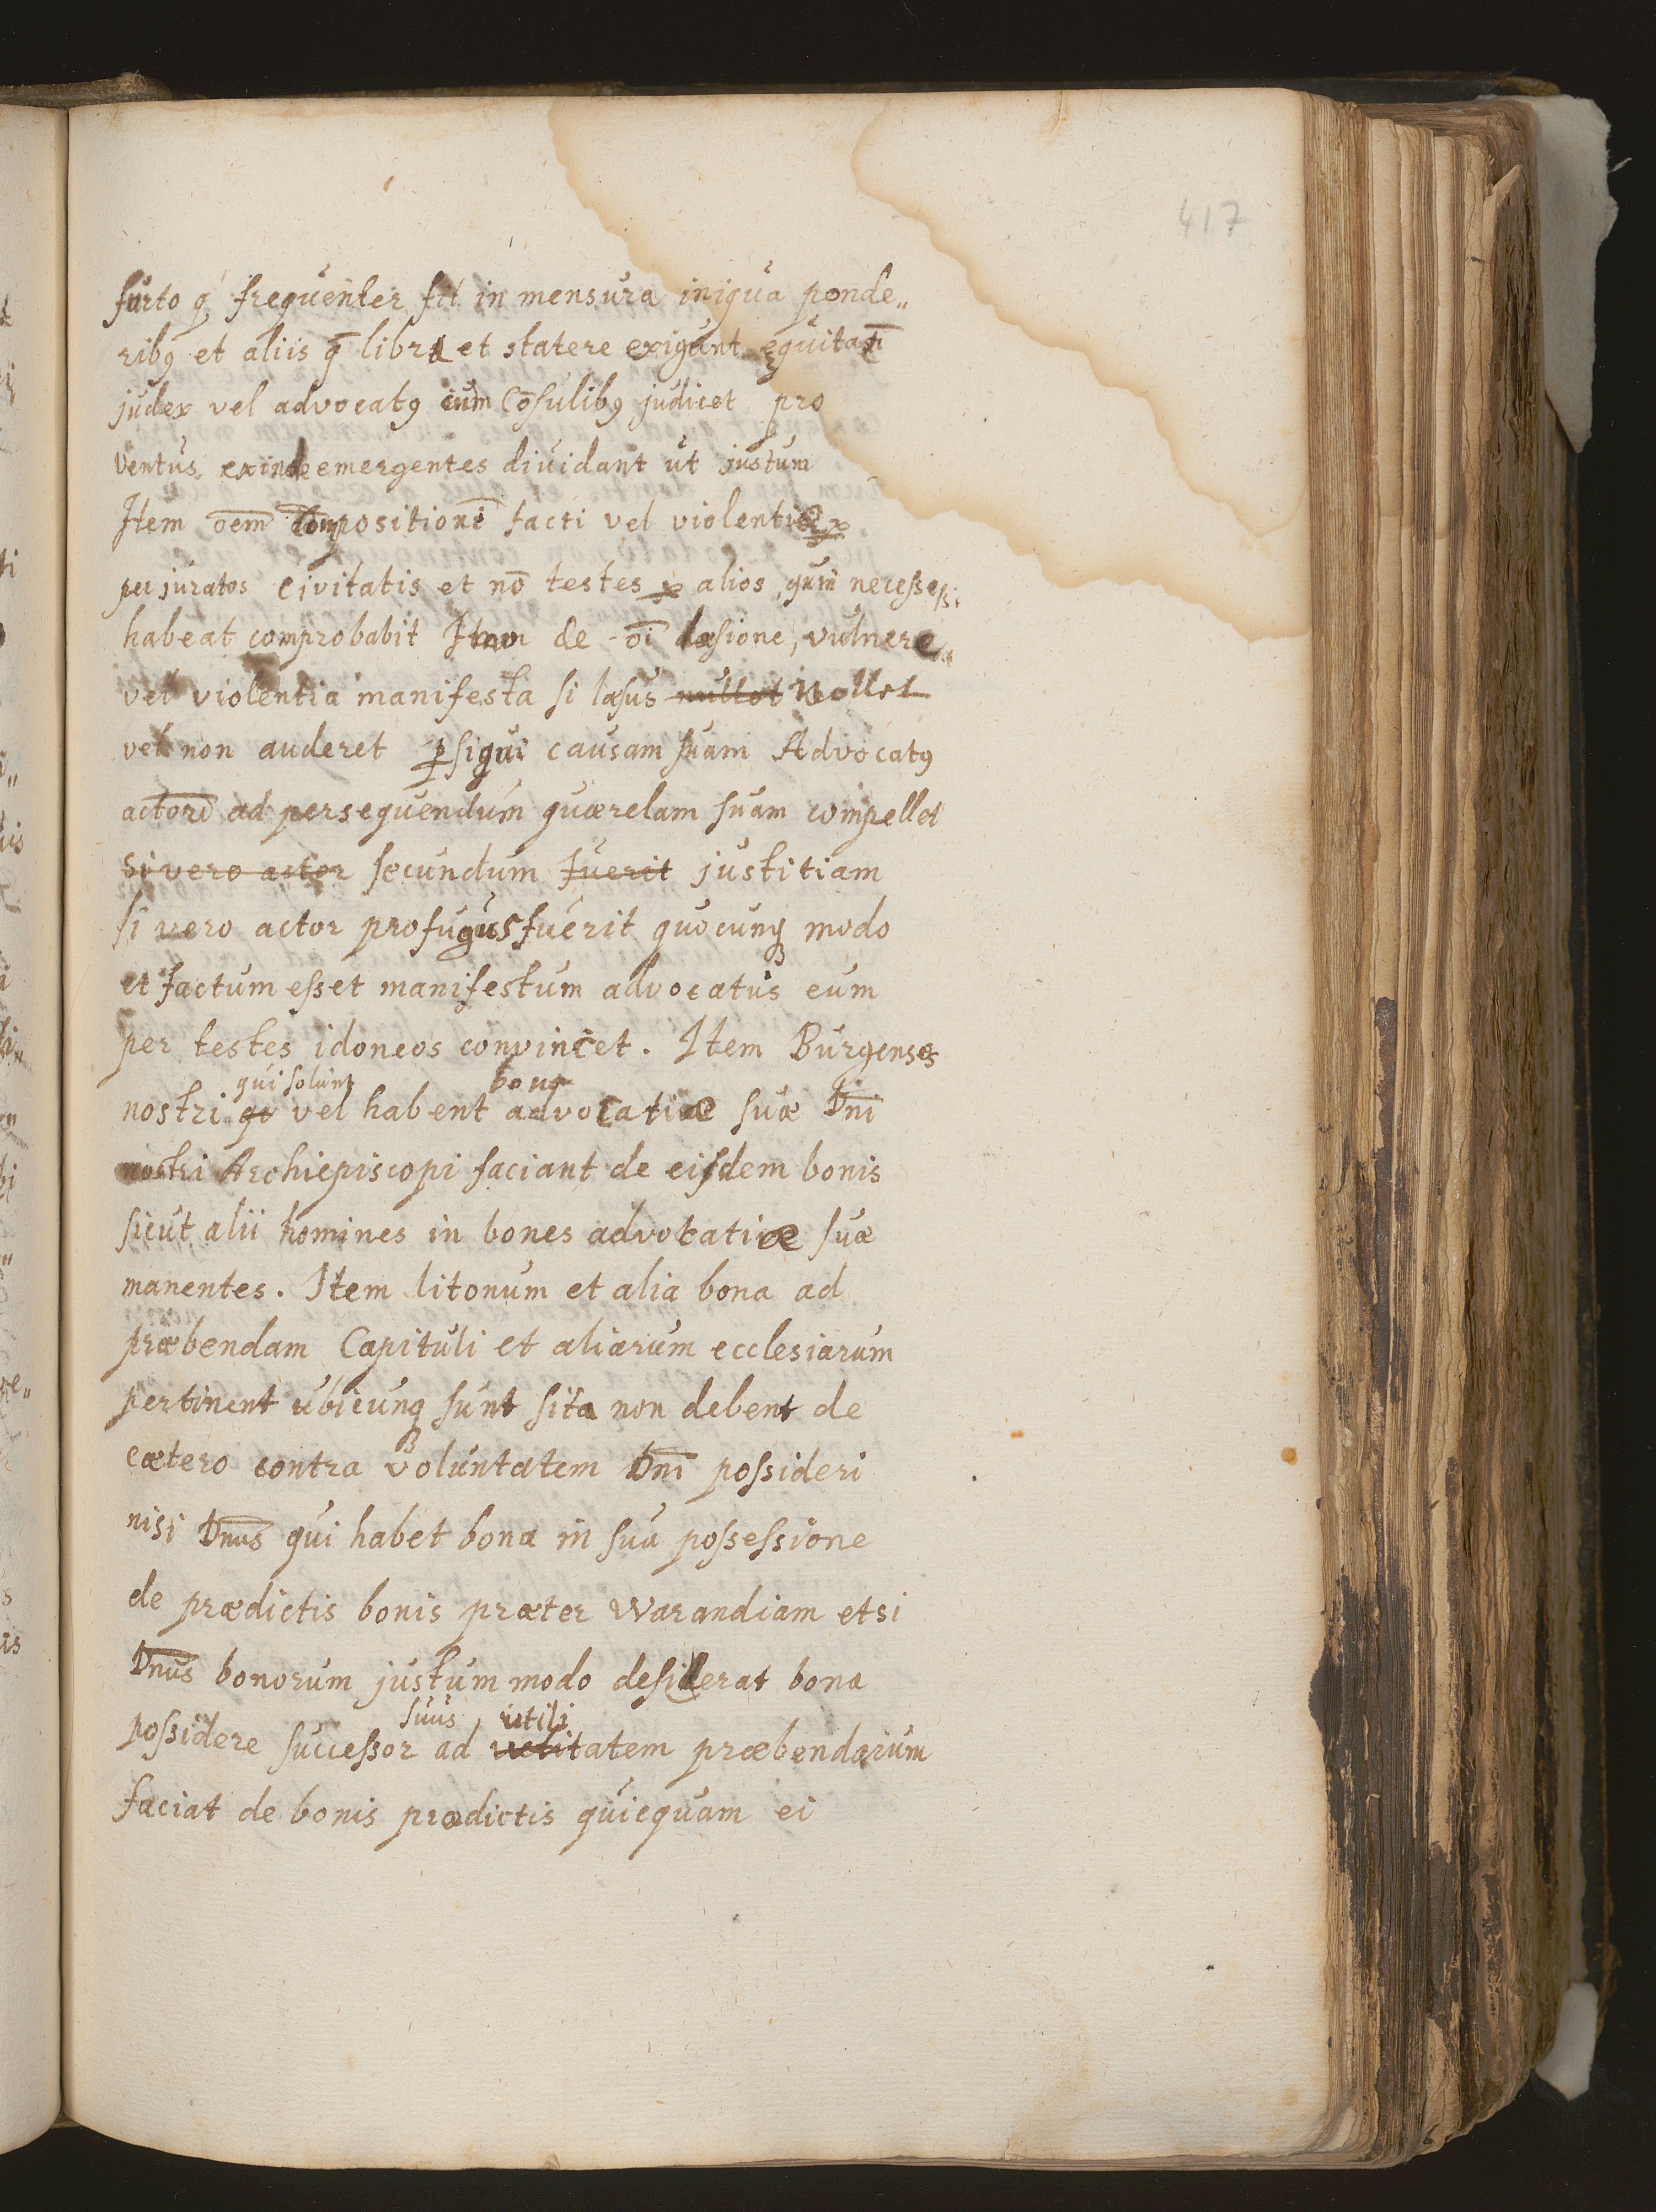 417
furto q frequenter fit in mensura iniqua ponde„
ribꝰ et aliis q̄ libra et statere exigunt equitat̄i
judex vel advocatꝰ cum Cōsulibꝰ judicet pro
ventus exinde emergentes dividant ut justum
Item oem̄ compositionē facti vel violentiæ
per juratos civitatis et nō testes alios, quin necesse
habeat comprobabit Item de oi̅ læsione, vulnere
vel violentia manifesta si læsus nullet nollet
vel non auderet ꝑsiqui causam suam Advocatꝰ
actorē ad persequendum quærelam suam compellet
Si vero actor secundum fuerit justitiam
si vero actor profugus fuerit quocunq modo
et factum esset manifestum advocatus eum
per testes idoneos convincet. Item Burgenses
qui solunt bona
nostri qe vel habent advocatiæ suæ Dn̄i
nostri Archiepiscopi faciant de eisdem bonis
sicut alii homines in bones advocatiæ suæ
manentes. Item litonum et alia bona ad
præbendam Capituli et aliarum ecclesiarum
pertinent ubicunq sunt sita non debent de
cætero contra voluntatem Dn̄i possideri
nisi Dn̄us qui habet bona in sua possessione
de prædictis bonis præter Warandiam etsi
Dn̄us bonorum justum modo desiderat bona
suus, utili
possidere successor ad vetitatem præbendarum
faciat de bonis prædictis quicquam ei